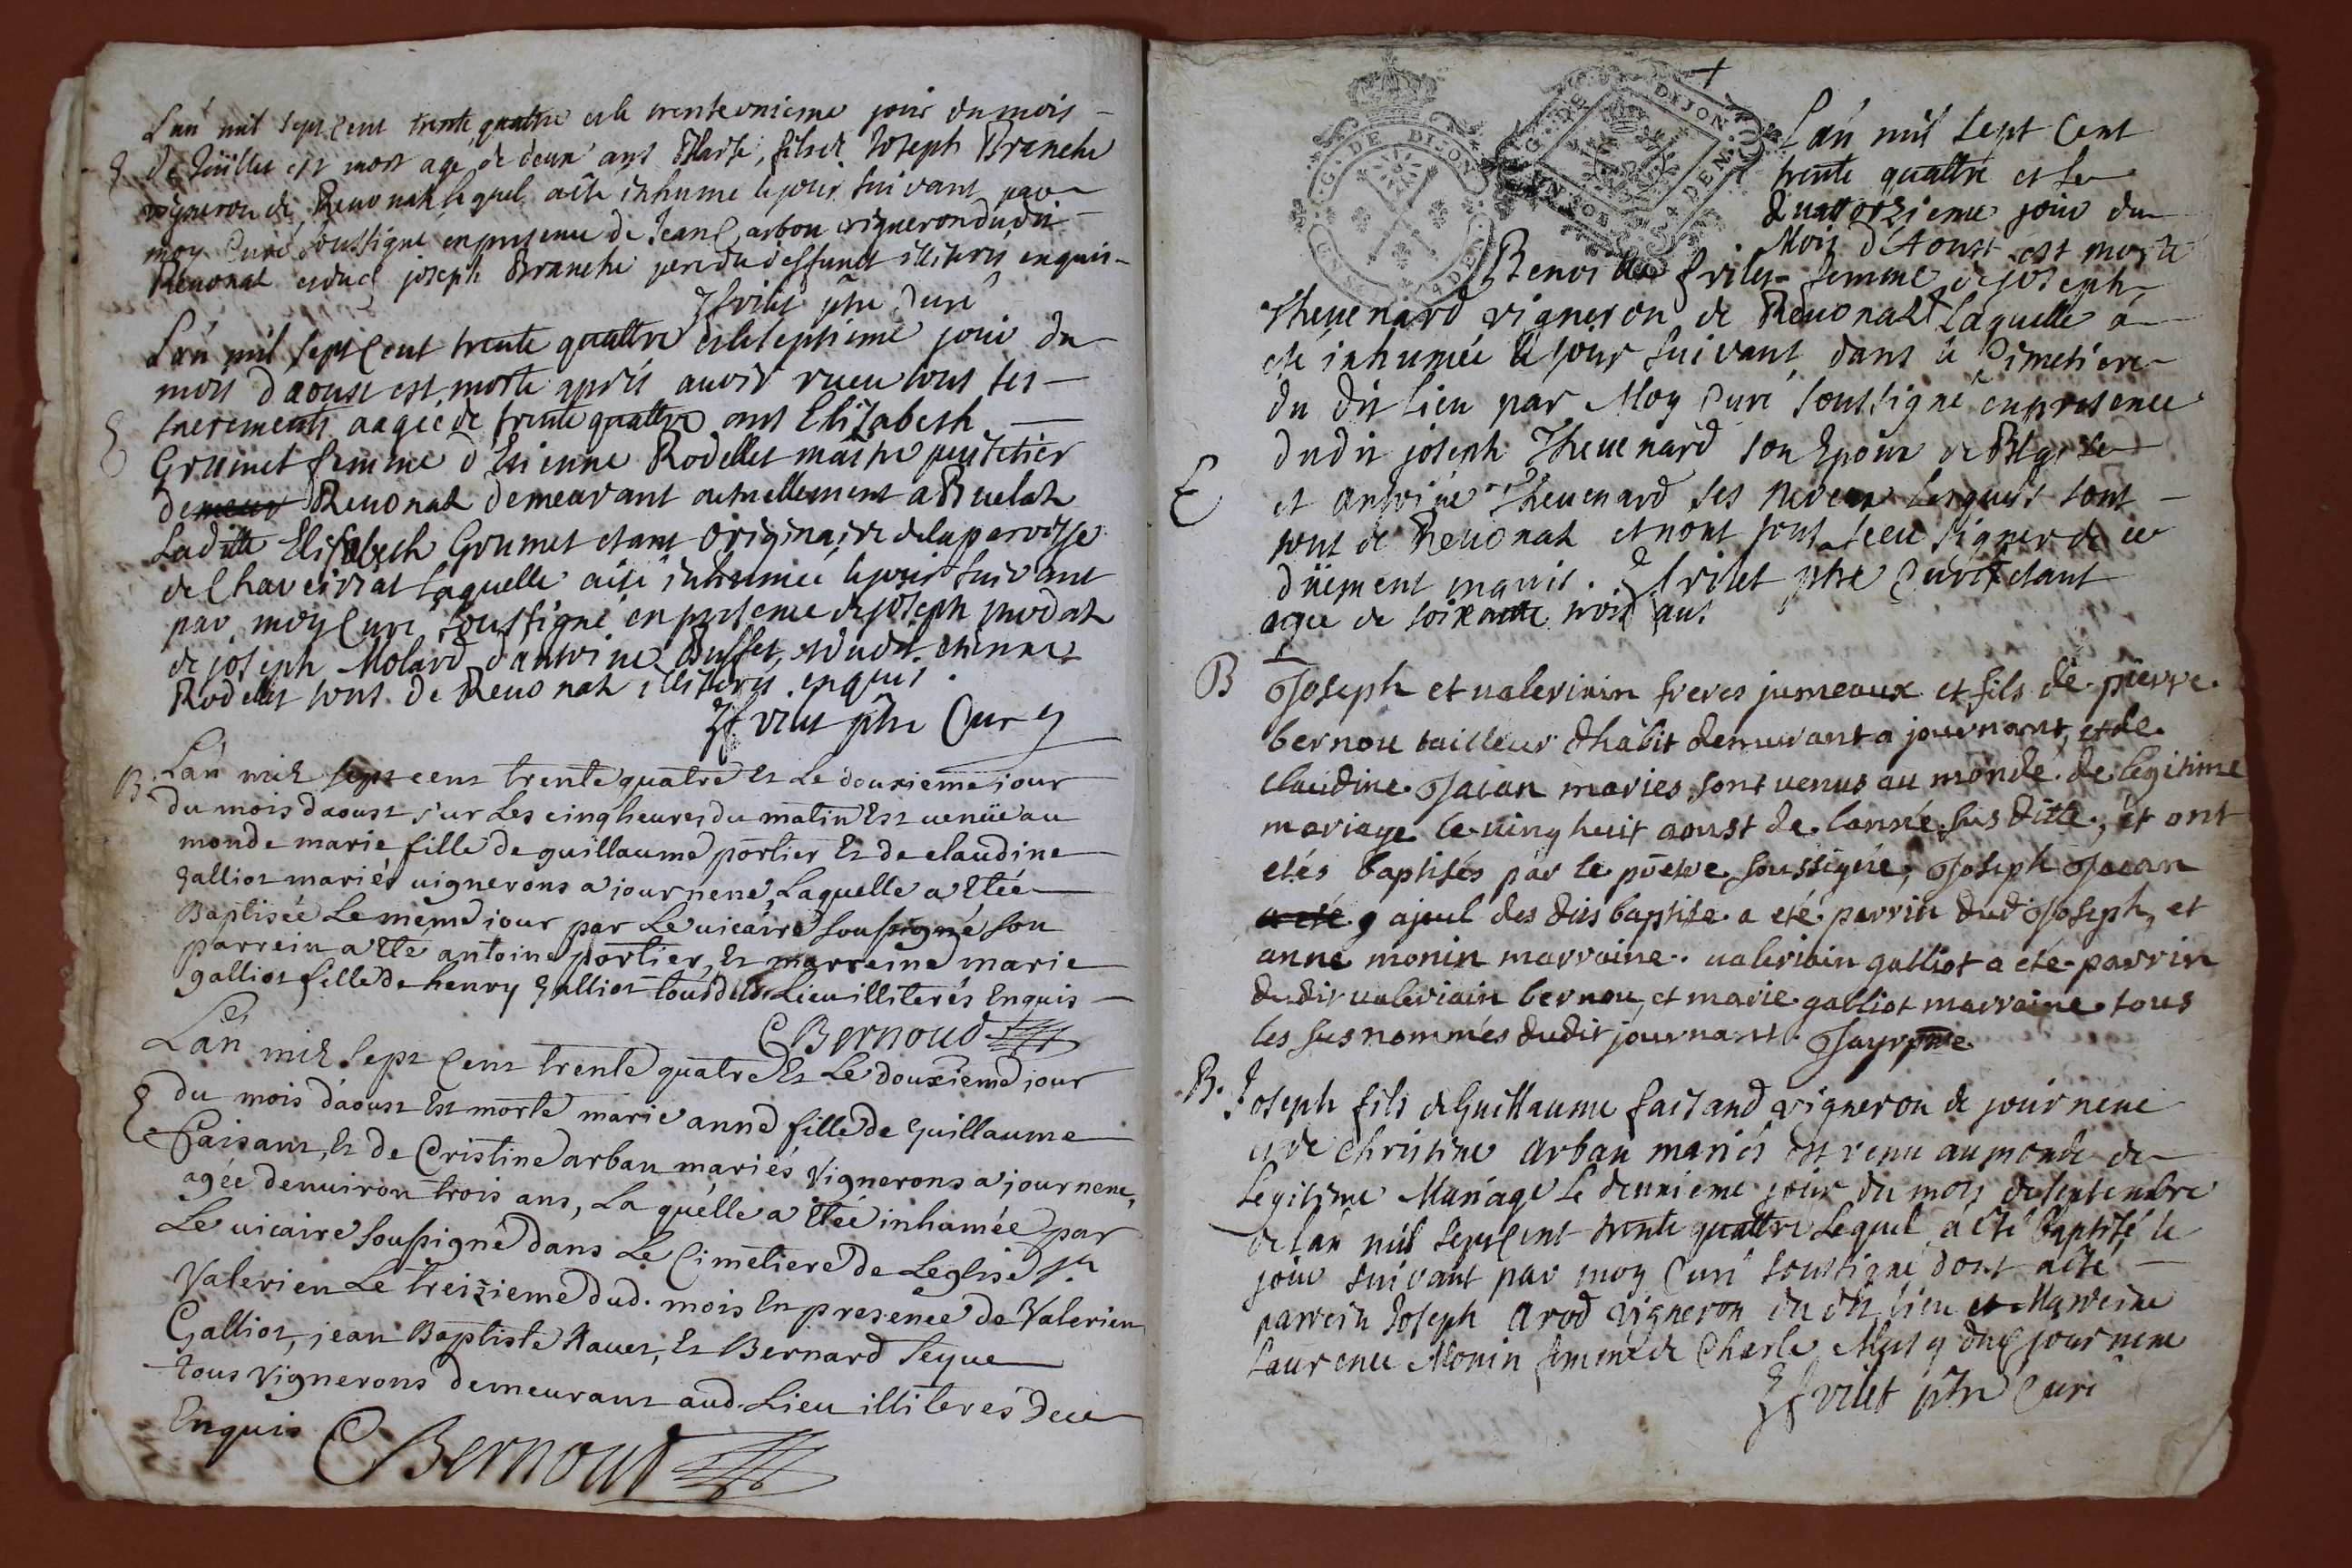 Lan mil sept cent trente quattre et le trente unieme jour du mois
E de Juillet est mort agé de deux ans fils de Joseph Branche
vigneron de Reuonat lequel a été inhumé le jour suivant par
moy Curé soussigné en presence de Jean Carbon vigneron dudit
Reuonat et dud joseph Branche pere du deffunct illiterés enquis
Jf vilet ptre Curé
Lan mil sept Cent trente quattre et le septieme jour du
mois daoust est morte après auoir receu tous ses
E sacrements aagée de trente quattre ans Elizabeth
Grumet femme d'Etienne Rodellet maitre
demeur Reuonat demeurant actuellement a Ruelat
Laditte Elisabeth Grumet etant originaire de la paroisse
de Chaveiriat laquelle a été inhumée le jour suivant
par moy Curé soussigné en presence de joseph prodat
de joseph Molard d'antoine Buffet, et dudit etienne
Rodellet tous de Reuonat illiterés enquis.
Jf vilet ptre Curé
B. Lan mil sept cent trente quatre Et Le douxieme jour
du mois daoust sur Les cinq heures du matin Est uenüe au
monde marie fille de guillaume portier Et de claudine
galliot mariés uignerons a journene, Laquelle a Etée
Baptisée Le meme jour par Le uicaire soussigné son
parrein a Eté antoine portier, Et marreine marie
galliot fille de henry Galliot tous dud. Lieu illiterés Enquis
CBernoud
Lan mil sept Cent trente quatre Et Le douxieme jour
E du mois daoust Est morte marie anne fille de Guillaume
Faisant, Et de Cristine arban mariés Vignerons a journene,
agée denuiron trois ans, La quelle a Etée inhumée par
Le uicaire soussigné dans Le Cimetiere de Leglise St
Valerien Le treizieme dud. mois En presence de Valerien
Galliot, jean Baptiste Rauet, Et Bernard Seyue
tous Vignerons demeurant aud. Lieu illiterés de ce
Enquis CBernoud
G. DE DIJON
G. DE DIJON
Lan mil sept Cent
trente quattre et le
quattorzieme jour du
Mois d'Aoust est morte
Benoitte friley femme de joseph
Theuenard vigneron de Reuonat Laquelle a
été inhumée le jour suivant dans le Cimetiere
du dit lieu par Moy Curé soussigné en presence
dudit joseph Theuenard son Epoux de Blaise
E et antoine Theuenard ses neveux lesquels sont
tous de Reuonat et nont sceu signer de ce
düement enquis. Jf vilet ptre Curé etant
agée de soixante trois ans
B Joseph et ualeriain freres jumeaux et fils de pierre
bernou tailleur dhabit demeurant a journant, et de
claudine Jacan maries sont uenus au monde de legitime
mariage le uing huit aoust de lanné sus ditte, et ont
etés baptisés par le prestre soussigné, Joseph Jacan
a eté ajeul des dits baptise a eté parrin dud Joseph, et
anne monin marraine. ualeriain galliot a eté parrin
dudit ualeriain bernou, et marie galliot marraine tous
les sus nommés dudit journant. Jayr ptre
B. Joseph fils de Guillaume faisand vigneron de journene
et de Christine arban mariés est venu au monde de
Legitime Mariage Le deuxieme jour du mois de septembre
de lan mil sept Cent trente quattre Lequel a été baptisé le
jour suivant par moy Curé soussigné dont a été
parrein Joseph arod vigneron du dit lieu et Marreine
Laurence Monin femme de Charle Musy dud journene
Jf vilet ptre Curé